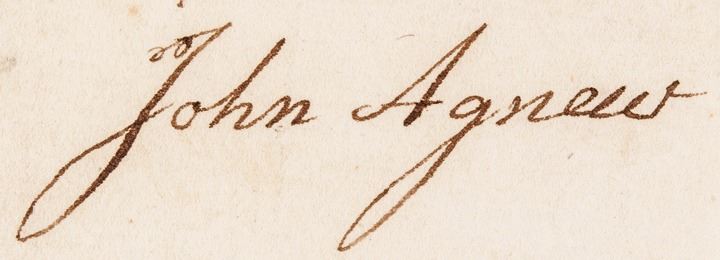 John Agnew